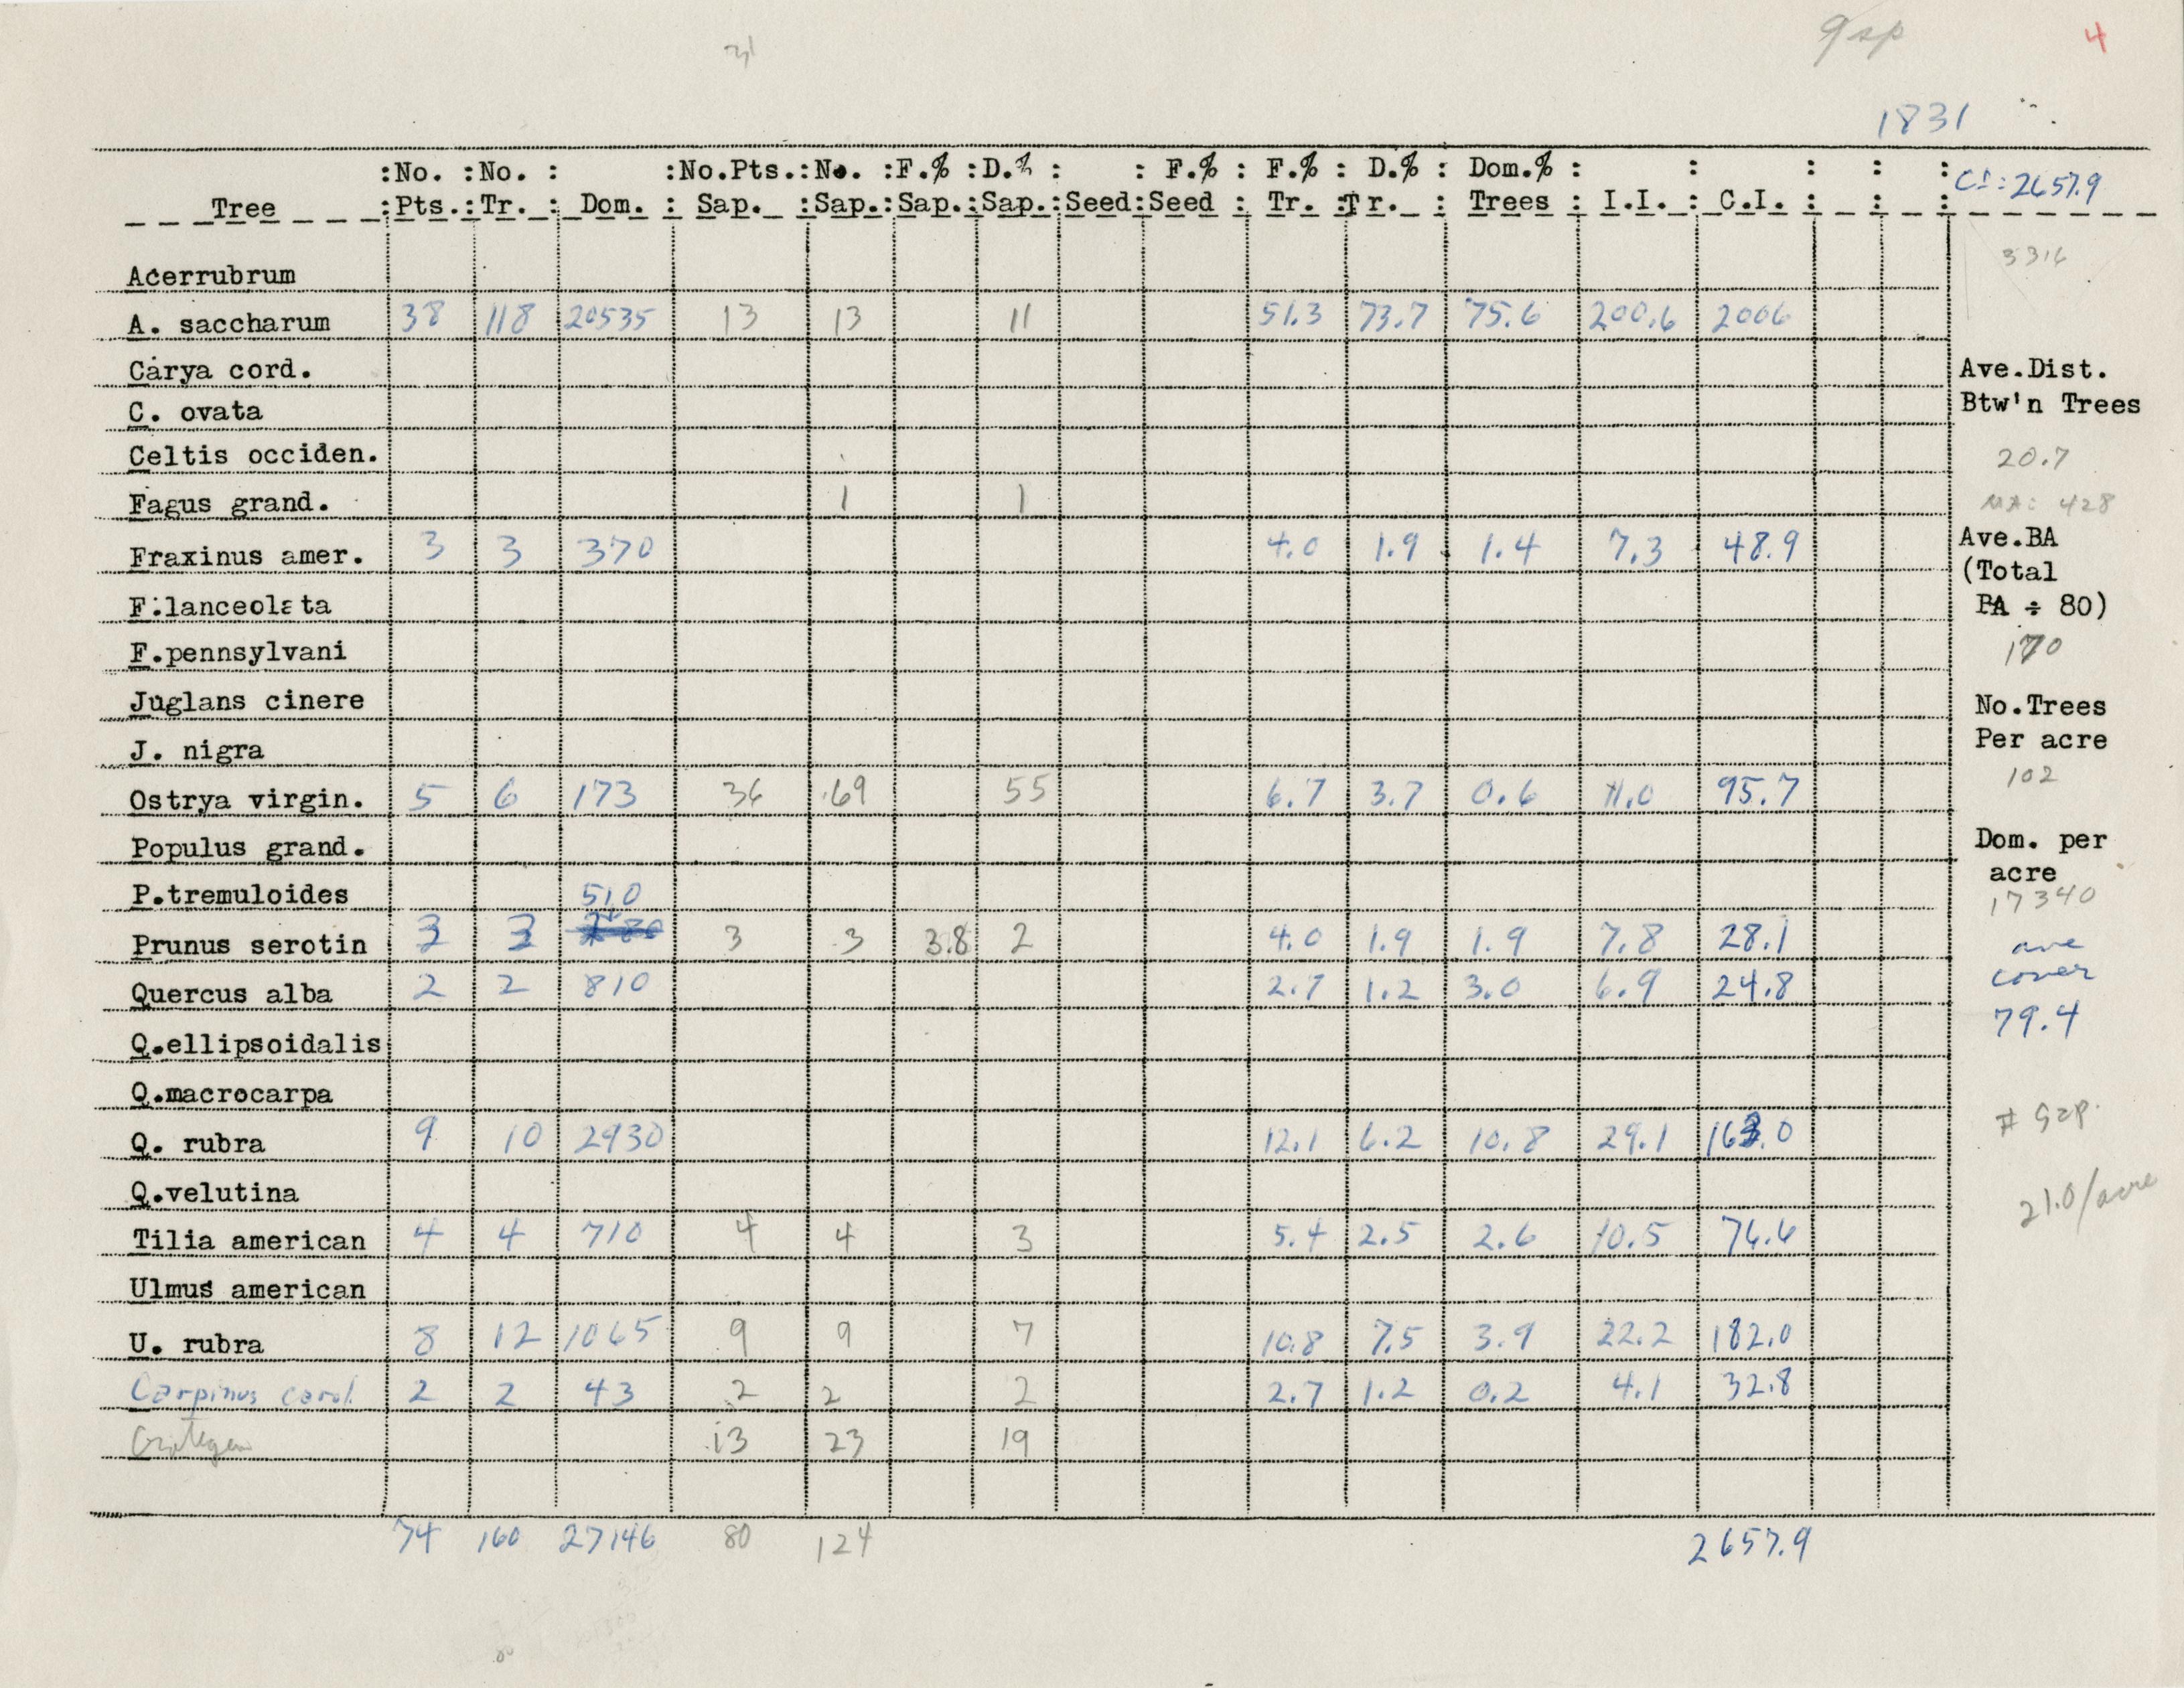 31 9 sp 4
1831
:No. :No. : :No.Pts.:No. :F.% :D.% : : F.% : F.% : D.% : Dom.% : : : : : CI: 2657.9
Tree :Pts.:Tr. : Dom. : Sap. :Sap.:Sap.:Sap.:Seed:Seed : Tr. :Tr. : Trees : I.I. : C.I. : : :
3316
Acerrubrum
A. saccharum 38 118 20535 13 13 11 51.3 73.7 75.6 200.6 2006
Carya cord. Ave.Dist.
C. ovata Btw'n Trees
Celtis occiden. 20.7
Fagus grand. 1 1 MA: 428
Fraxinus amer. 3 3 370 4.0 1.9 1.4 7.3 48.9 Ave.BA
(Total
F.lanceolata BA ÷ 80)
F.pennsylvani 170
Juglans cinere No.Trees
J. nigra Per acre
Ostrya virgin. 5 6 173 36 69 55 6.7 3.7 0.6 11.0 95.7 102
Populus grand. Dom. per
P.tremuloides acre
510 17340
Prunus serotin 3 3 3 3 3.8 2 4.0 1.9 1.9 7.8 28.1 ave
Quercus alba 2 2 810 2.7 1.2 3.0 6.9 24.8 cover
Q.ellipsoidalis 79.4
Q.macrocarpa
Q. rubra 9 10 2930 12.1 6.2 10.8 29.1 163.0 # Sap.
Q.velutina 21.0/acre
Tilia american 4 4 710 4 4 3 5.4 2.5 2.6 10.5 76.6
Ulmus american
U. rubra 8 12 1065 9 9 7 10.8 7.5 3.9 22.2 182.0
Carpinus carol. 2 2 43 2 2 2 2.7 1.2 0.2 4.1 32.8
13 23 19
74 160 27146 80 124 2657.9